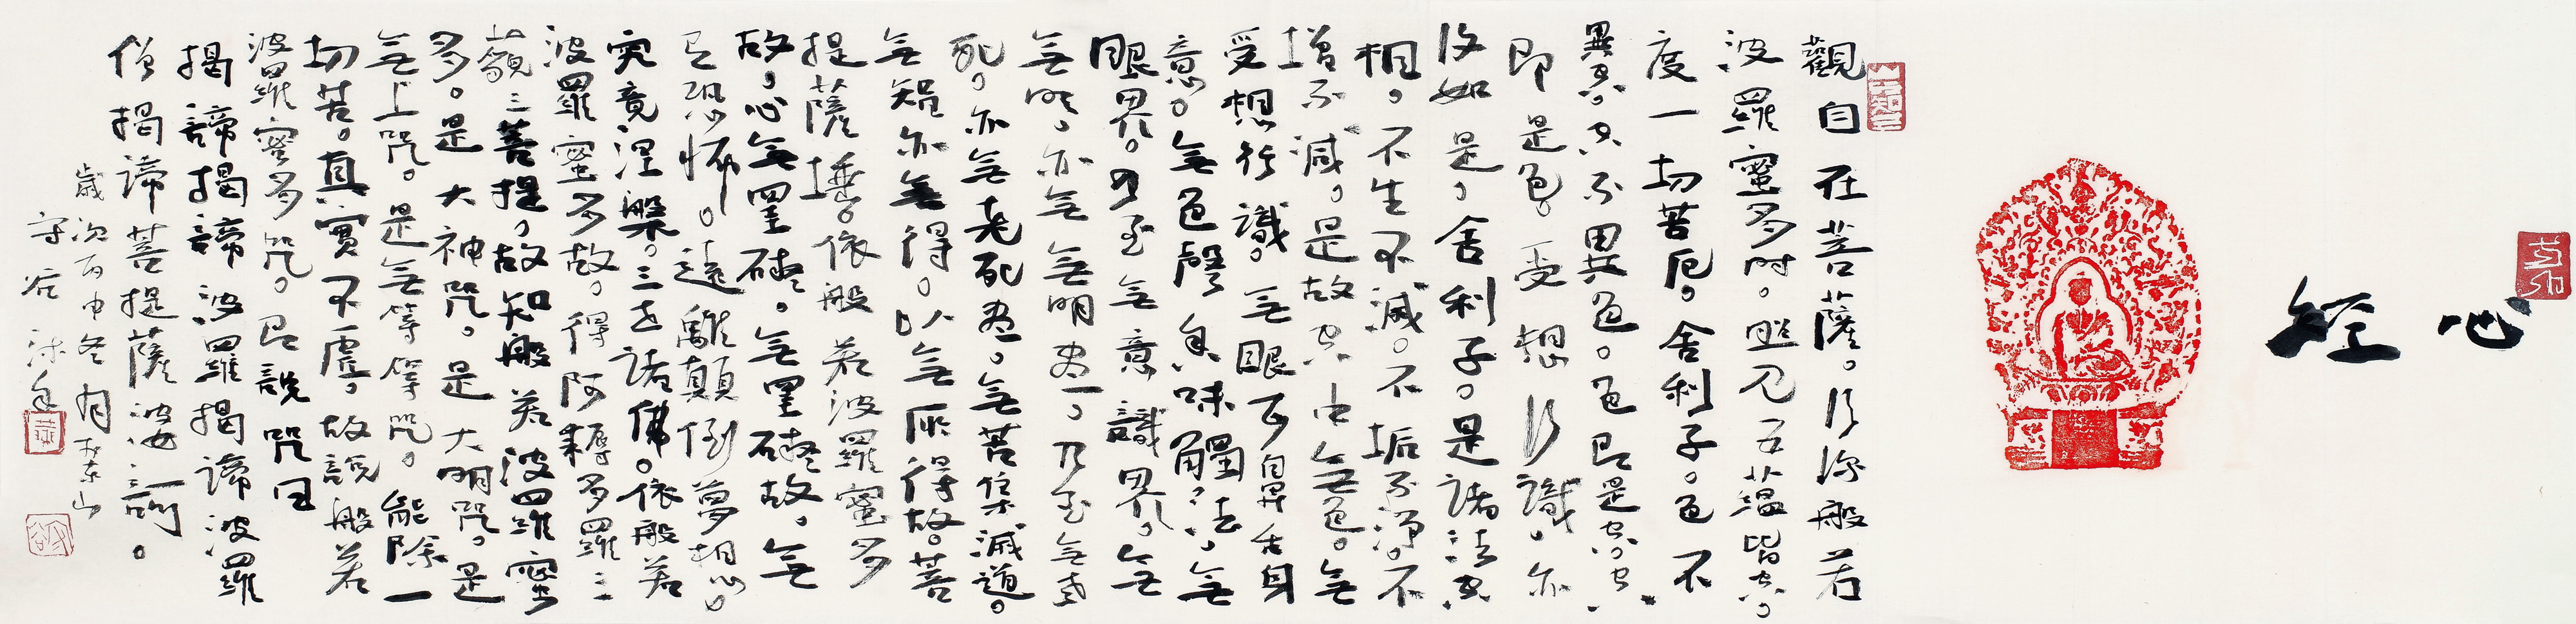 心經
觀自在菩薩。行深般若
波羅蜜多時。照見五蘊皆空。
度一切苦厄。舍利子。色不
異空。空不異色。色即是空。空
即是色。受想行識。亦
復如是。舍利子。是諸法空
相。不生不滅。不垢不淨。不
增不減。是故空中無色。無
受想行識。無眼耳鼻舌身
意。無色聲香味觸法。無
眼界。乃至無意識界。無
無明。亦無無明盡。乃至無老
死。亦無老死盡。無苦集滅道。
無智亦無得。以無所得故。菩
提薩埵。依般若波羅蜜多
故。心無罣礙。無罣礙故。無
有恐怖。遠離顛倒夢想。
究竟涅槃。三世諸佛。依般若
波羅蜜多故。得阿耨多羅三
藐三菩提。故知般若波羅蜜
多。是大神咒。是大明咒。是
無上咒。是無等等咒。能除一
切苦。真實不虛。故說般若
波羅蜜多咒。即說咒曰
揭諦揭諦波羅揭諦波羅
僧揭諦菩提薩婆訶。
歲次丙申冬月於東山
守